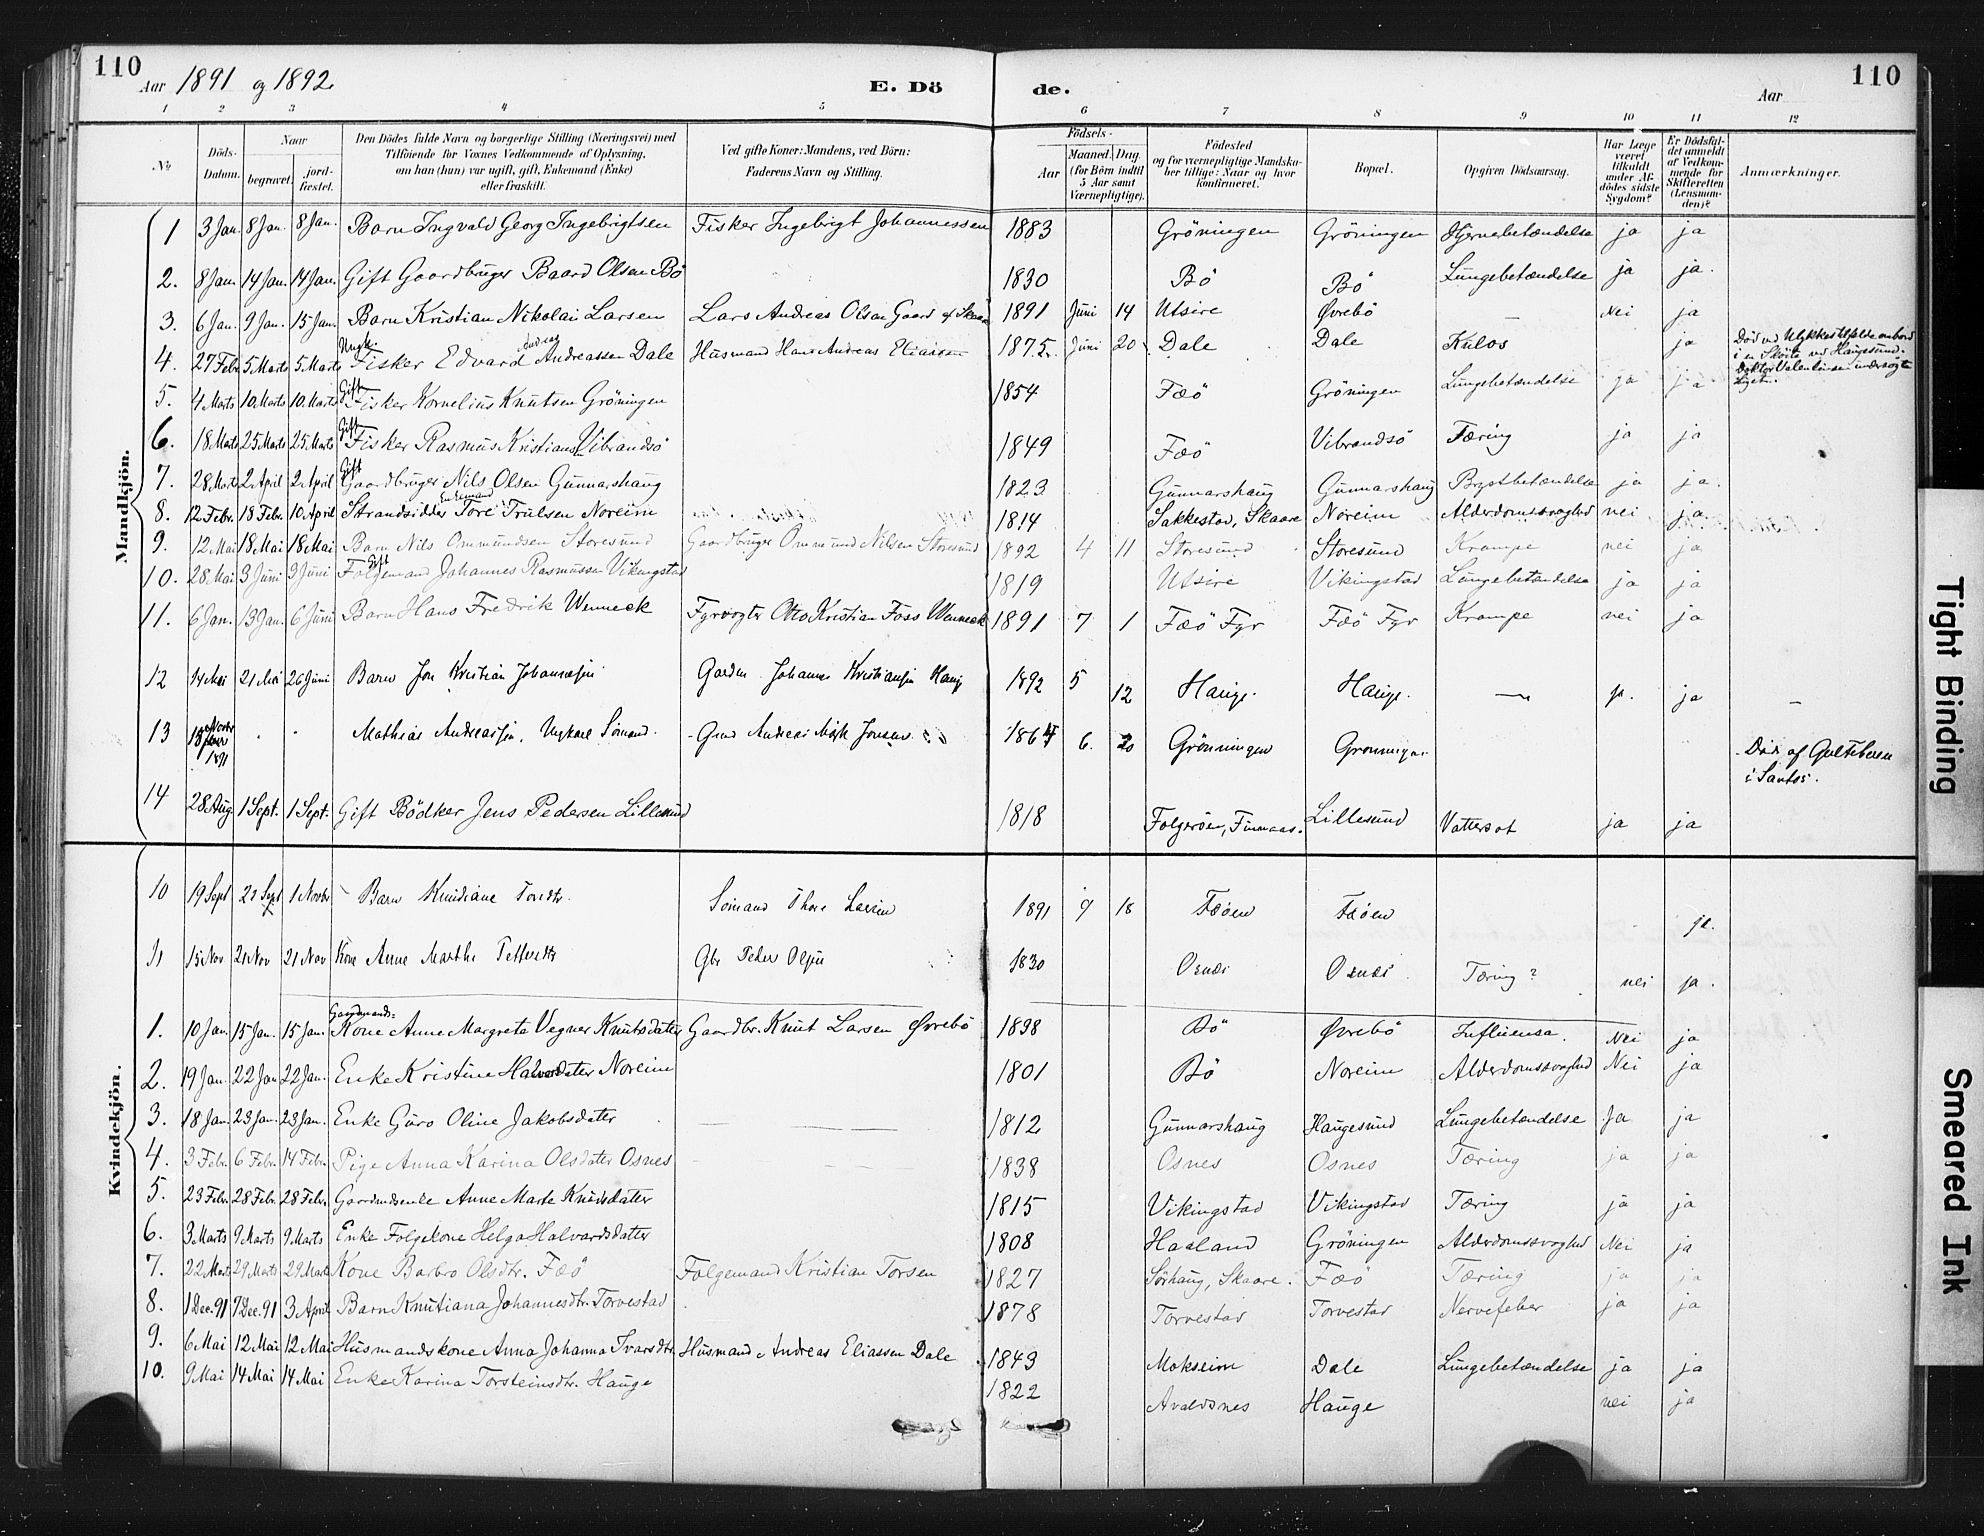 110 Aar 1891 og 1892. E. Dö de. Aar 110
1 2 3 4 5 6 7 8 9 10 11 12
№ Döds-Datum. Naar begravet. jord-fæstet. Den Dödes fulde Navn og borgerlige Stilling (Næringsvei) med Tilföiende for Voxnes Vedkommende af Oplysning, om han (hun) var ugift, gift, Enkemand (Enke) eller fraskilt. Ved gifte Koner: Mandens, ved Börn: Faderens Navn og Stilling. Födsels- Aar Maaned. Dag (for Börn indtil 5 Aar samt Værnepligtige). Födested og for værnepligtige Mandska-ber tillige: Naar og hvor konfirmeret. Bopæl. Opgiven Dödsaarsag. Har Læge været tilkaldt under Af-dödes sidste Sygdom? Er Dödsfal-det anmeldt af Vedkom-mende for Skifteretten (Lensman-den)? Anmærkninger.
Mandkjön.
1 3 Jan. 8 Jan. 8 Jan. Barn Ingvald Georg Ingebrigtsen Fisker Ingebrigt Johannessen 1883 Gröningen Gröningen Hjernebetændelse ja ja
2. 8 Jan. 14 Jan. 14 Jan. Gift Gaardbruger Baard Olsen Bö 1830 Bö Bö Lungebetændelse ja ja.
3. 6 Jan. 9 Jan. 15 Jan. Barn Kristian Nikolai Larsen Lars Andreas Olsen Gaard af Skaare 1891 Juni 14 Utsire Øvrebö — Nei ja
4. 27 Febr. 5 Marts 5 Marts Ungk. Fisker Edvard Andreas Andreassen Dale Husmand Hans Andreas Eliassen 1875. Juni 20 Dale Dale Kulos ja Död ved Ulykkestilfælde ombord i en Sköite ved Haugesund. Doktor Valentinsen undersögte Liget.
5. 4 Marts 10. Marts 10. Marts Gift Fisker Kornelius Knutsen Gröningen 1854 Fæö Gröningen Lungebetændelse ja ja
6. 18 Marts 25 Marts 25 Marts Gift Fisker Rasmus Kristians. Vibrandsö 1849 Fæö Vibrandsö Tæring ja ja
7. 28 Marts 2 April 2 April Gift Gaardbruger Nils Olsen Gunnarshaug 1823 Gunnarshaug Gunnarshaug Brystbetændelse ja ja.
8. 12 Febr. 18 Febr. 10 April Strandsidder Enkemand Tore Trulsen Noreim 1814 Sakkestad, Skaare Noreim Alderdomssvaghed nei ja
9. 12 Mai 18 Mai 18 Mai Barn Nils Ommundsen Storesund Gaardbruger Ommund Nilsen Storesund 1892 4 11 Storesund Storesund Krampe nei ja
10. 28 Mai 3 Juni 3 Juni Gift Folgemand Johannes Rasmussen Vikingstad 1819 Utsire Vikingstad Lungebetændelse ja ja
11. 6 Jan. 13 Jan. 6 Juni Barn Hans Fredrik Wenneck Fyrvogter Otto Kristian Foss Wenneck 1891 7 1 Fæö Fyr Fæö Fyr Krampe nei ja
12 14 Mai 21 Mai 26 Juni Barn Jon Kristian Johannesen Garden Johannes Kristiansen Haug 1892 5 12 Hauge. Hauge. — ja. ja —
13 18 Novbr 1891 Mathias Andreassen, Ungkarl Sömand. Gmd Andreas Jonsen 1864 6. 20 Grönningen Gronningen Död af Gulfeberen i Santos.
14 28 Aug. 1 Sept. 1 Sept. Gift Bödker Jens Pedersen Lillesund 1818 Folgeröen, Finnaas. Lillesund Vattersot ja ja
Kvindekjön.
10 19 Sept 22 Sept 1 Novbr Barn Knudiane Toresdtr. Sömand Thore Larsen 1891 9 18 Fæöen Fæöen ja.
11 15 Nov 21 Nov 21 Nov Kone Anne Marthe Pettersdtr Gbr Peder Olsen 1830 Osnes Osnes Tæring? nei ja.
1. 10 Jan. 15 Jan. 15 Jan. Gaardmands- Kone Anne Margreta Vegner Knutsdatter Gaardbr. Knut Larsen Øvrebö 1838 Bö Øvrebö Influensa. Nei ja
2. 19 Jan. 22 Jan 22 Jan. Enke Kristine Halvorsdatter Noreim 1801 Bö Noreim Alderdomssvaghed Nei ja
3. 18 Jan. 23 Jan. 23 Jan. Enke Guro Oline Jakobsdatter 1812 Gunnarshaug Haugesund Lungebetændelse Ja ja
4. 3 Febr. 6 Febr. 14 Febr. Pige Anna Karina Olsdatter Osnes 1838 Osnes Osnes Tæring ja ja
5. 23 Febr. 28 Febr. 28 Febr. Gaardmdsenke Anne Marte Knudsdatter 1815 Vikingstad Vikingstad Tæring ja ja
6. 3 Marts 9 Marts 9 Marts Enke Folgekone Helga Halvardsdatter 1808 Haaland Gröningen Alderdomssvaghed Nei ja
7. 22 Marts 29 Marts 29 Marts Kone Barbro Olsdtr. Fæö Folgemand Kristian Torsen 1827 Sörhaug, Skaare. Fæö Tæring ja ja
8. 1 Dec. 91 7 Dec. 91 3 April Barn Knutiana Johannesdtr. Torvestad 1878 Torvestad Torvestad Nervefeber ja ja
9. 6 Mai 12 Mai 12 Mai Husmandskone Anna Johanna Ivarsdtr. Husmand Andreas Eliassen Dale 1843 Mokseim Dale Lungebetændelse ja ja
10. 9 Mai 14 Mai 14 Mai Enke Karina Torsteinsdtr. Hauge 1822 Avaldsnes Hauge nei ja
Tight Binding
Smeared Ink